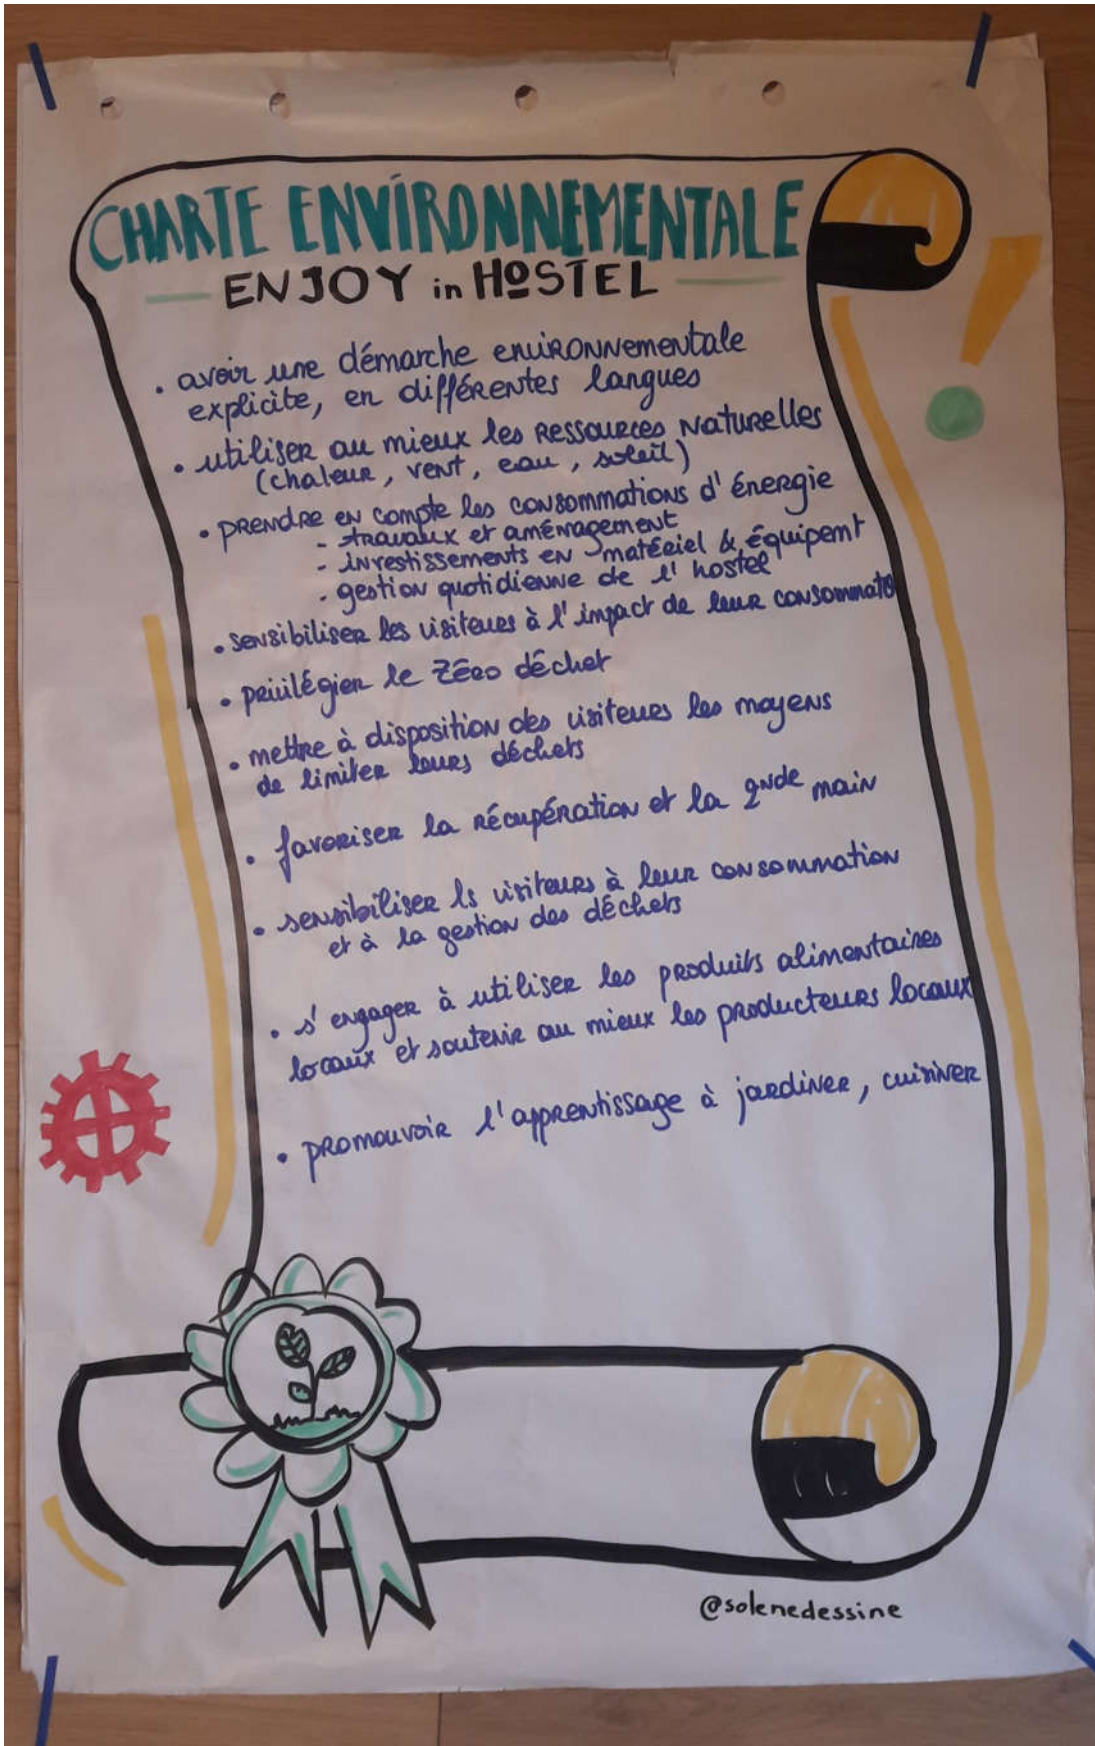 CHARTE ENVIRONNEMENTALE
ENJOY in HOSTEL
. avoir une démarche environnementale
explicite, en différentes langues
. utiliser au mieux les ressources naturelles
(chaleur, vent, eau, soleil)
. prendre en compte les consommations d'énergie
- travaux et aménagement
- investissements en matériel & équipemt
- gestion quotidienne de l'hostel
. sensibiliser les visiteurs à l'impact de leur consommato
. privilégier le zéro déchet
. mettre à disposition des visiteurs les moyens
de limiter leurs déchets
. favoriser la récupération et la 2nde main
. sensibiliser ls visiteurs à leur consommation
et à la gestion des déchets
. s'engager à utiliser les produits alimentaires
locaux et soutenir au mieux les producteurs locaux
. promouvoir l'apprentissage à jardiner, cuisiner
@solenedessine